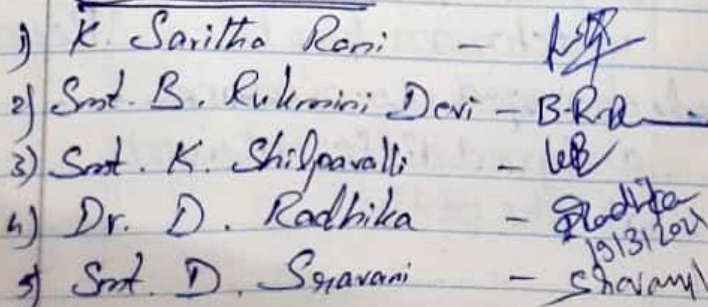 1) K. Saritha Rani -
2) Smt. B. Rukmini Devi - B.R.D
3) Smt. K. Shilpavalli -
4) Dr. D. Radhika - Radhika
19/3/2021
5) Smt. D. Sravani - Shravani